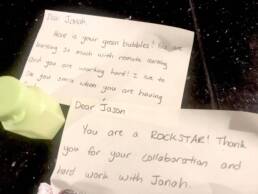 Dear Jonah,
Here is your green bubbles! You are
learning so much with remote learning
and you are working hard! I love to
see you smile when you are having
Dear Jason
You are a ROCKSTAR! Thank
you for your collaboration and
hard work with Jonah.